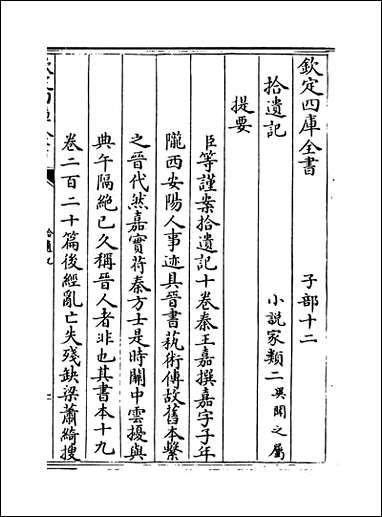 欽定四庫全書　子部十二
拾遺記　小説家類二異聞之屬
提要
臣等謹案拾遺記十卷秦王嘉撰嘉字子年
隴西安陽人事迹具晉書藝術傳故舊本繫
之晉代然嘉實苻秦方士是時關中雲擾與
典午隔絶已久稱晉人者非也其書本十九
卷二百二十篇後經亂亡失殘缺梁蕭綺搜
拾遺記